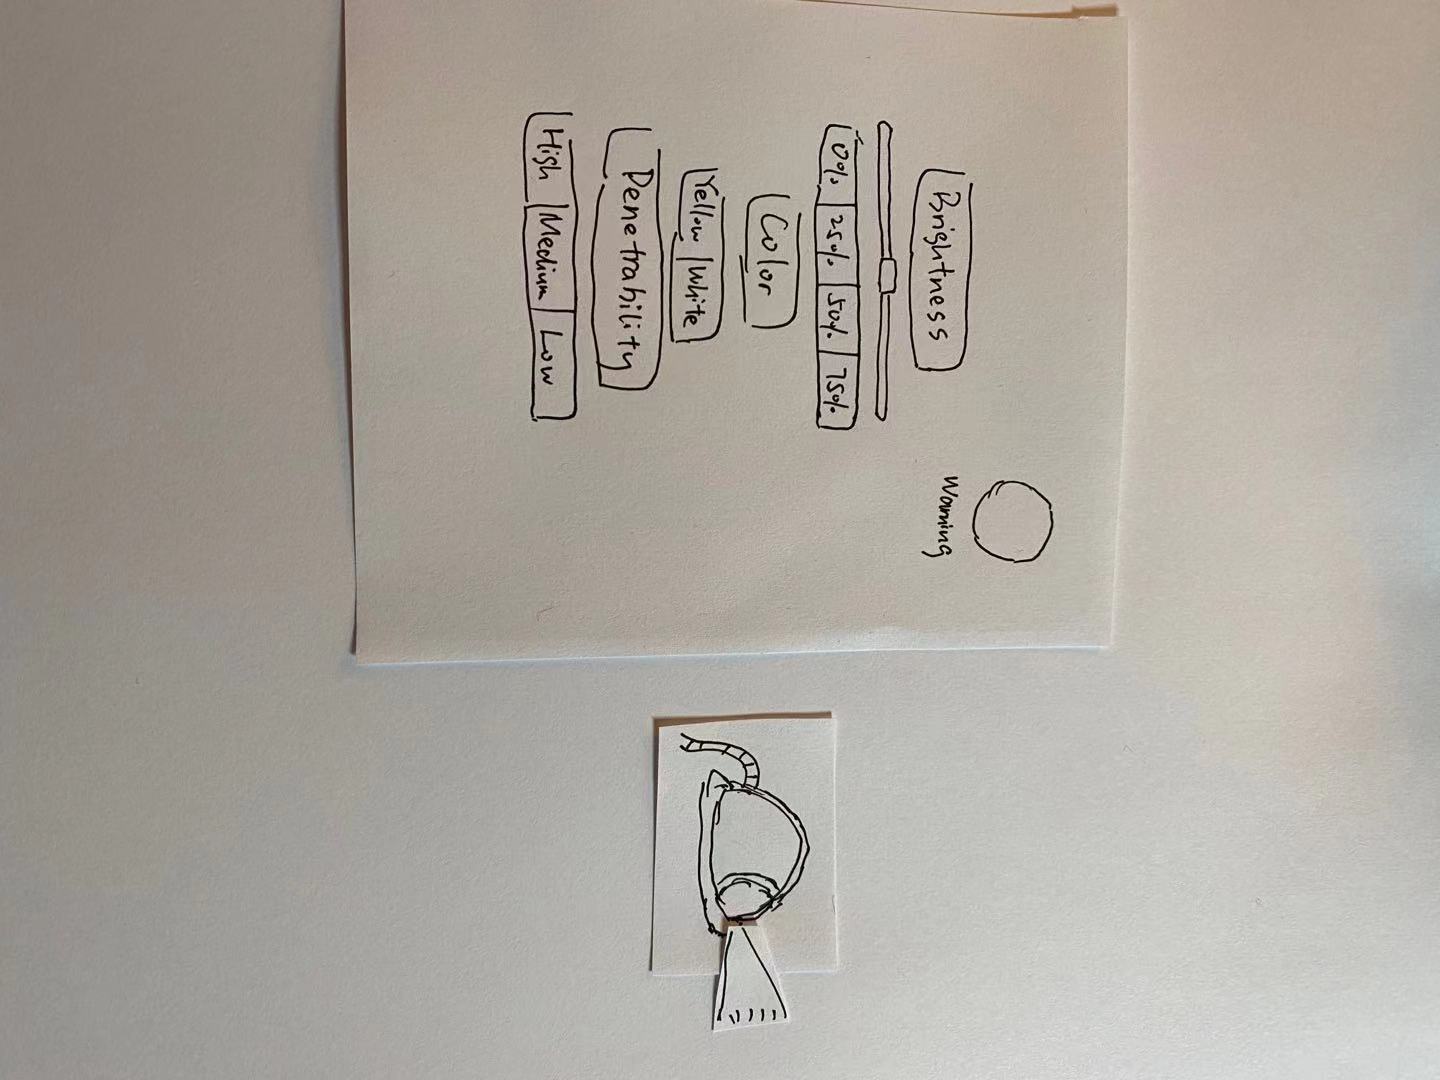 Warning
Brightness
0% 25% 50% 75%
Color
Yellow White
Penetrability
High Medium Low